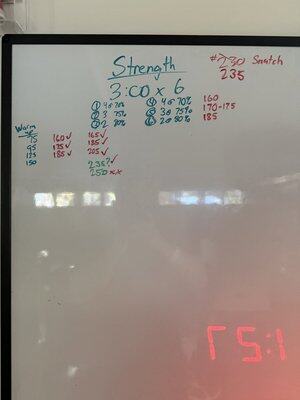 Strength
3:00 x 6
#230 Snatch
235
① 4@70%
② 3 75%
③ 2 80%
④ 4@70%
⑤ 3@75%
⑥ 2@80%
160
170-175
185
Warm
75
95
135
150
160✓
175✓
185✓
165✓
185✓
205✓
235?✓
250xx